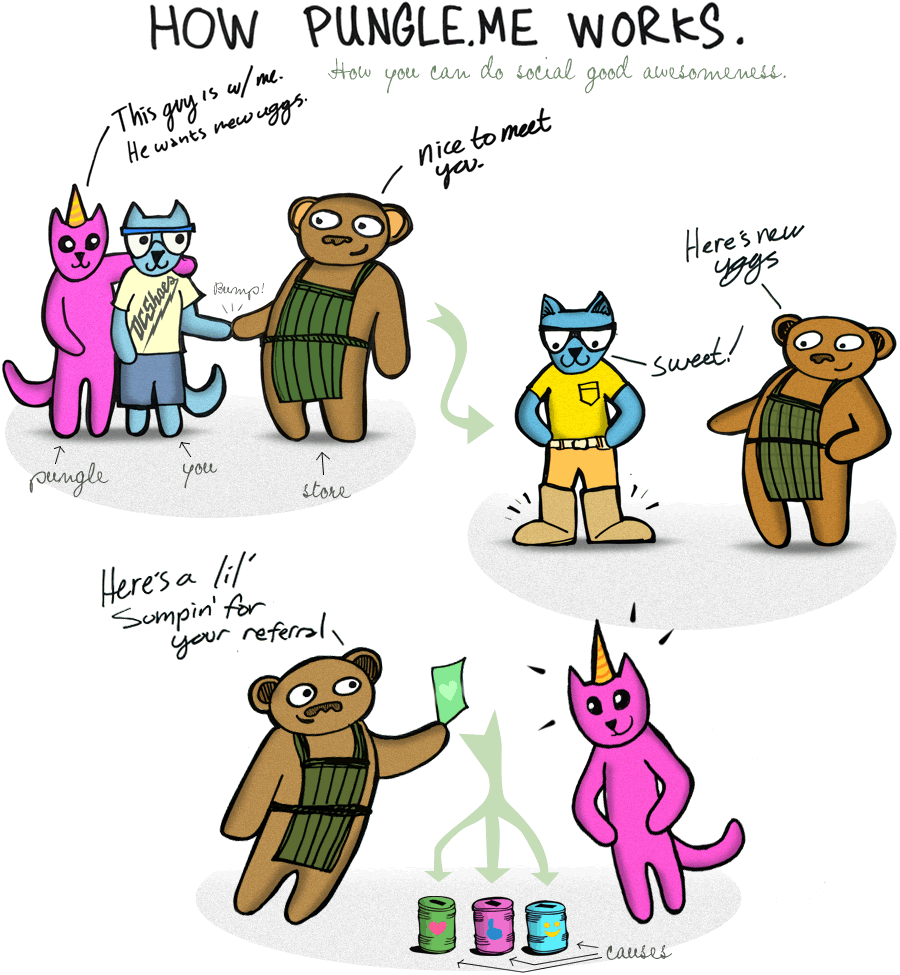 HOW PUNGLE.ME WORKS.
How you can do social good awesomeness.
This guy is w/ me.
He wants new uggs.
nice to meet
you.
Bump!
DC Shoes
pungle
you
store
Here's new
uggs
sweet!
Here's a lil'
Sumpin' for
your referral
causes